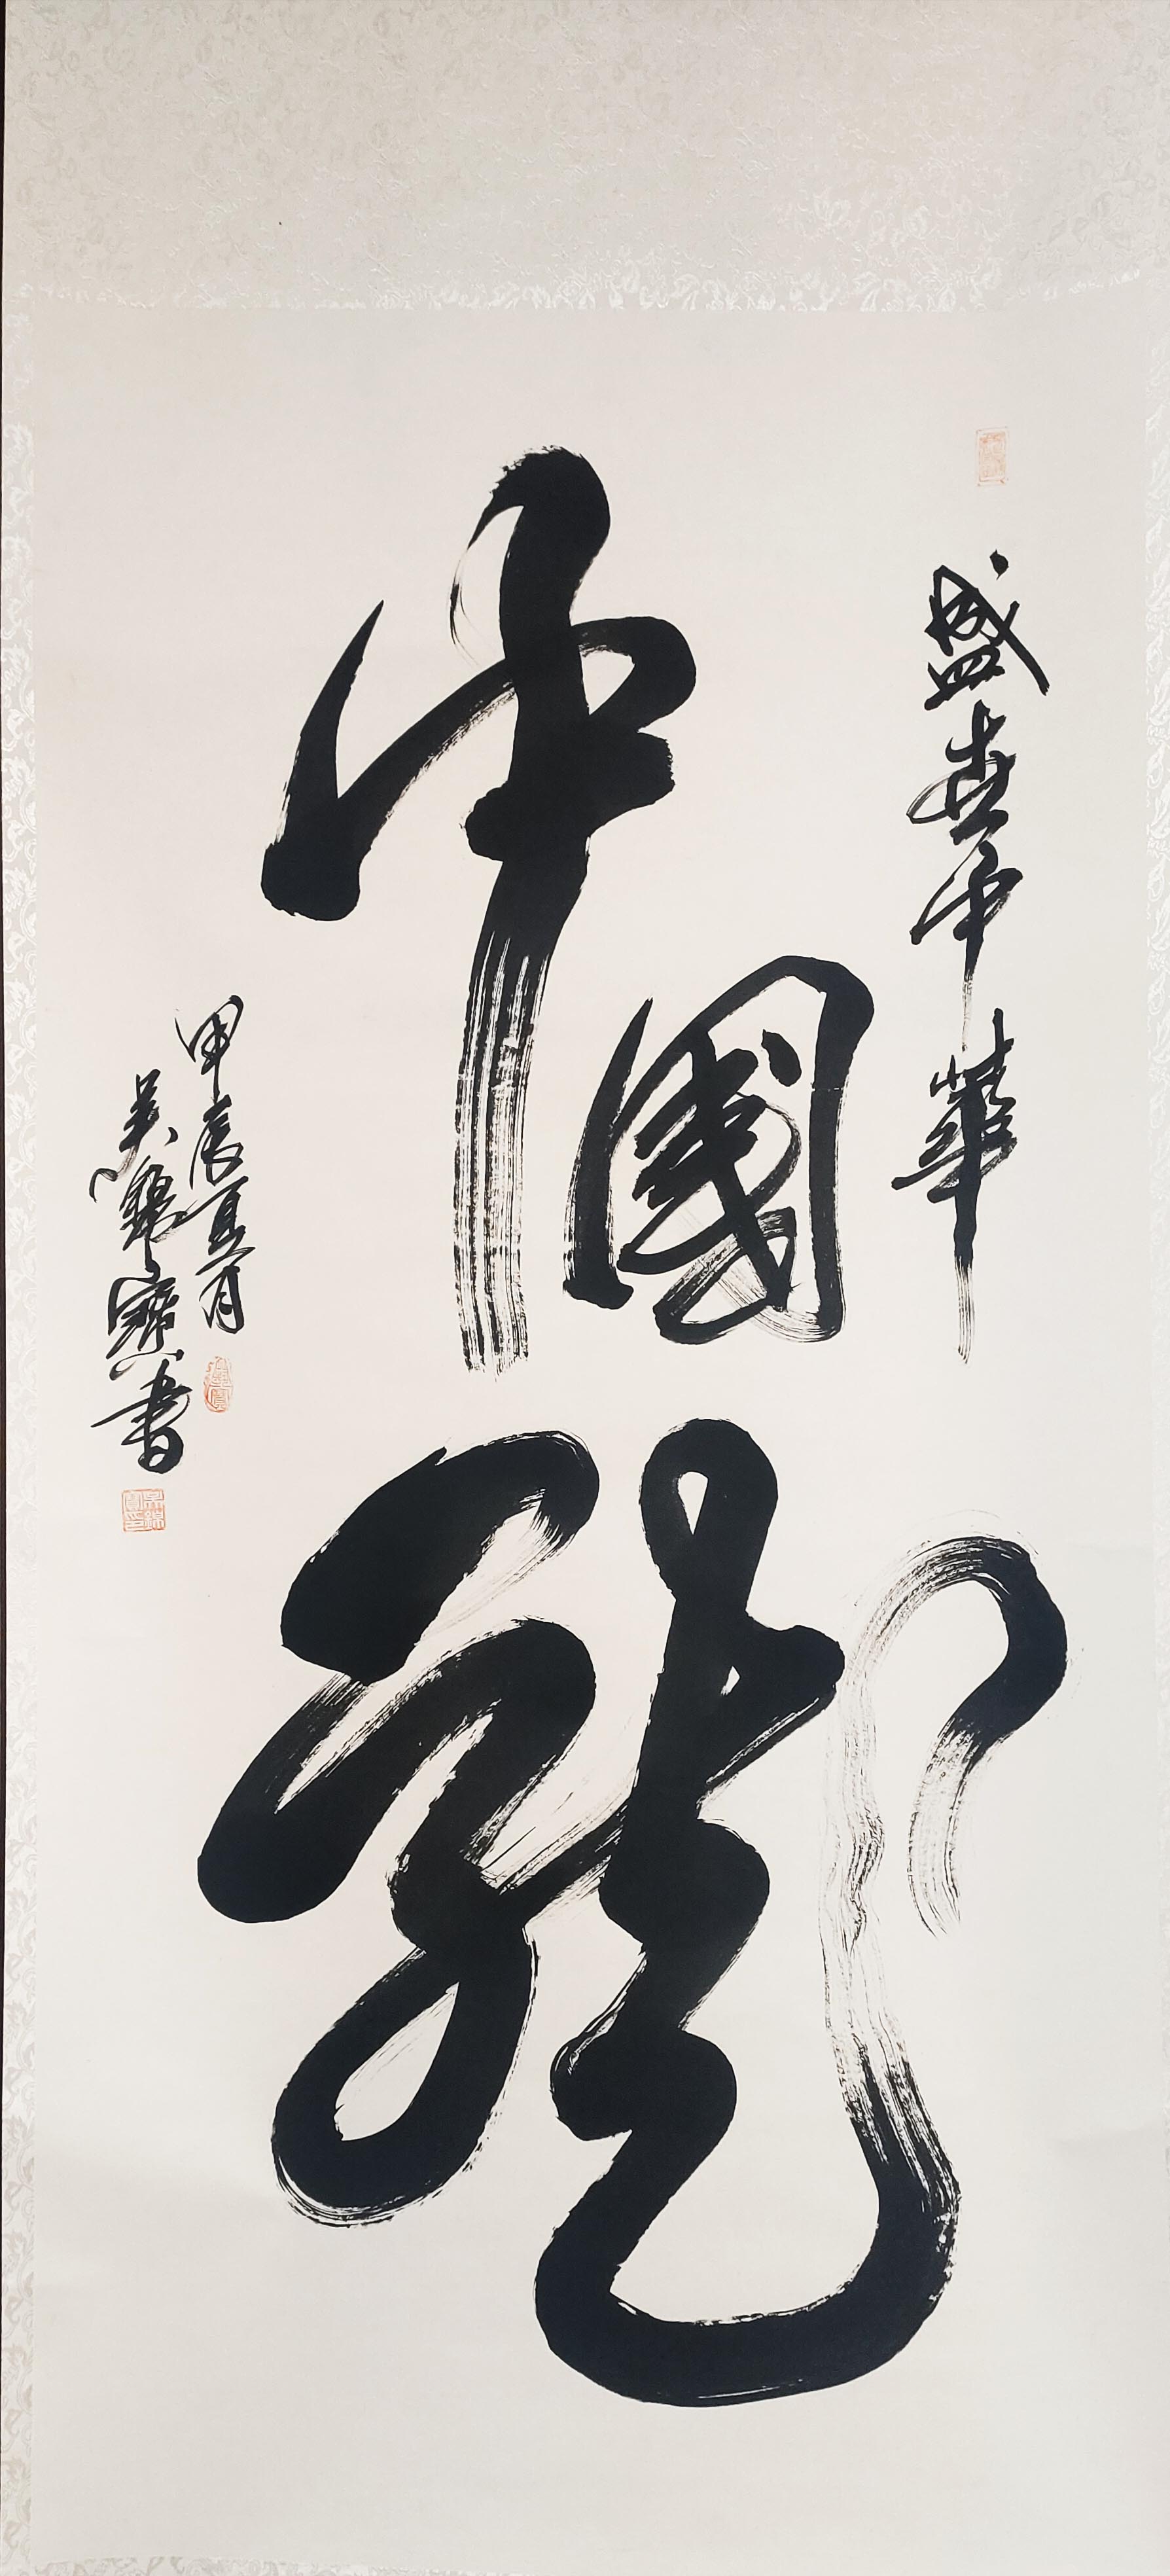 盛世中華
中國龍
甲辰夏月
吴錦寶書